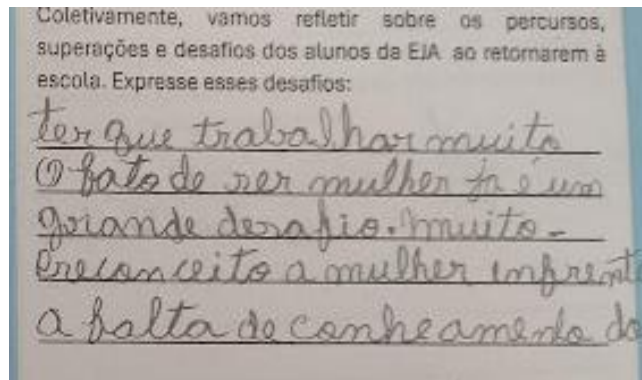 Coletivamente, vamos refletir sobre os percursos,
superações e desafios dos alunos da EJA ao retornarem à
escola. Expresse esses desafios:
ter que trabalhar muito
O fato de ser mulher ja é um
grande desafio. muito
Preconceito a mulher infrent
a falta do conheamento do